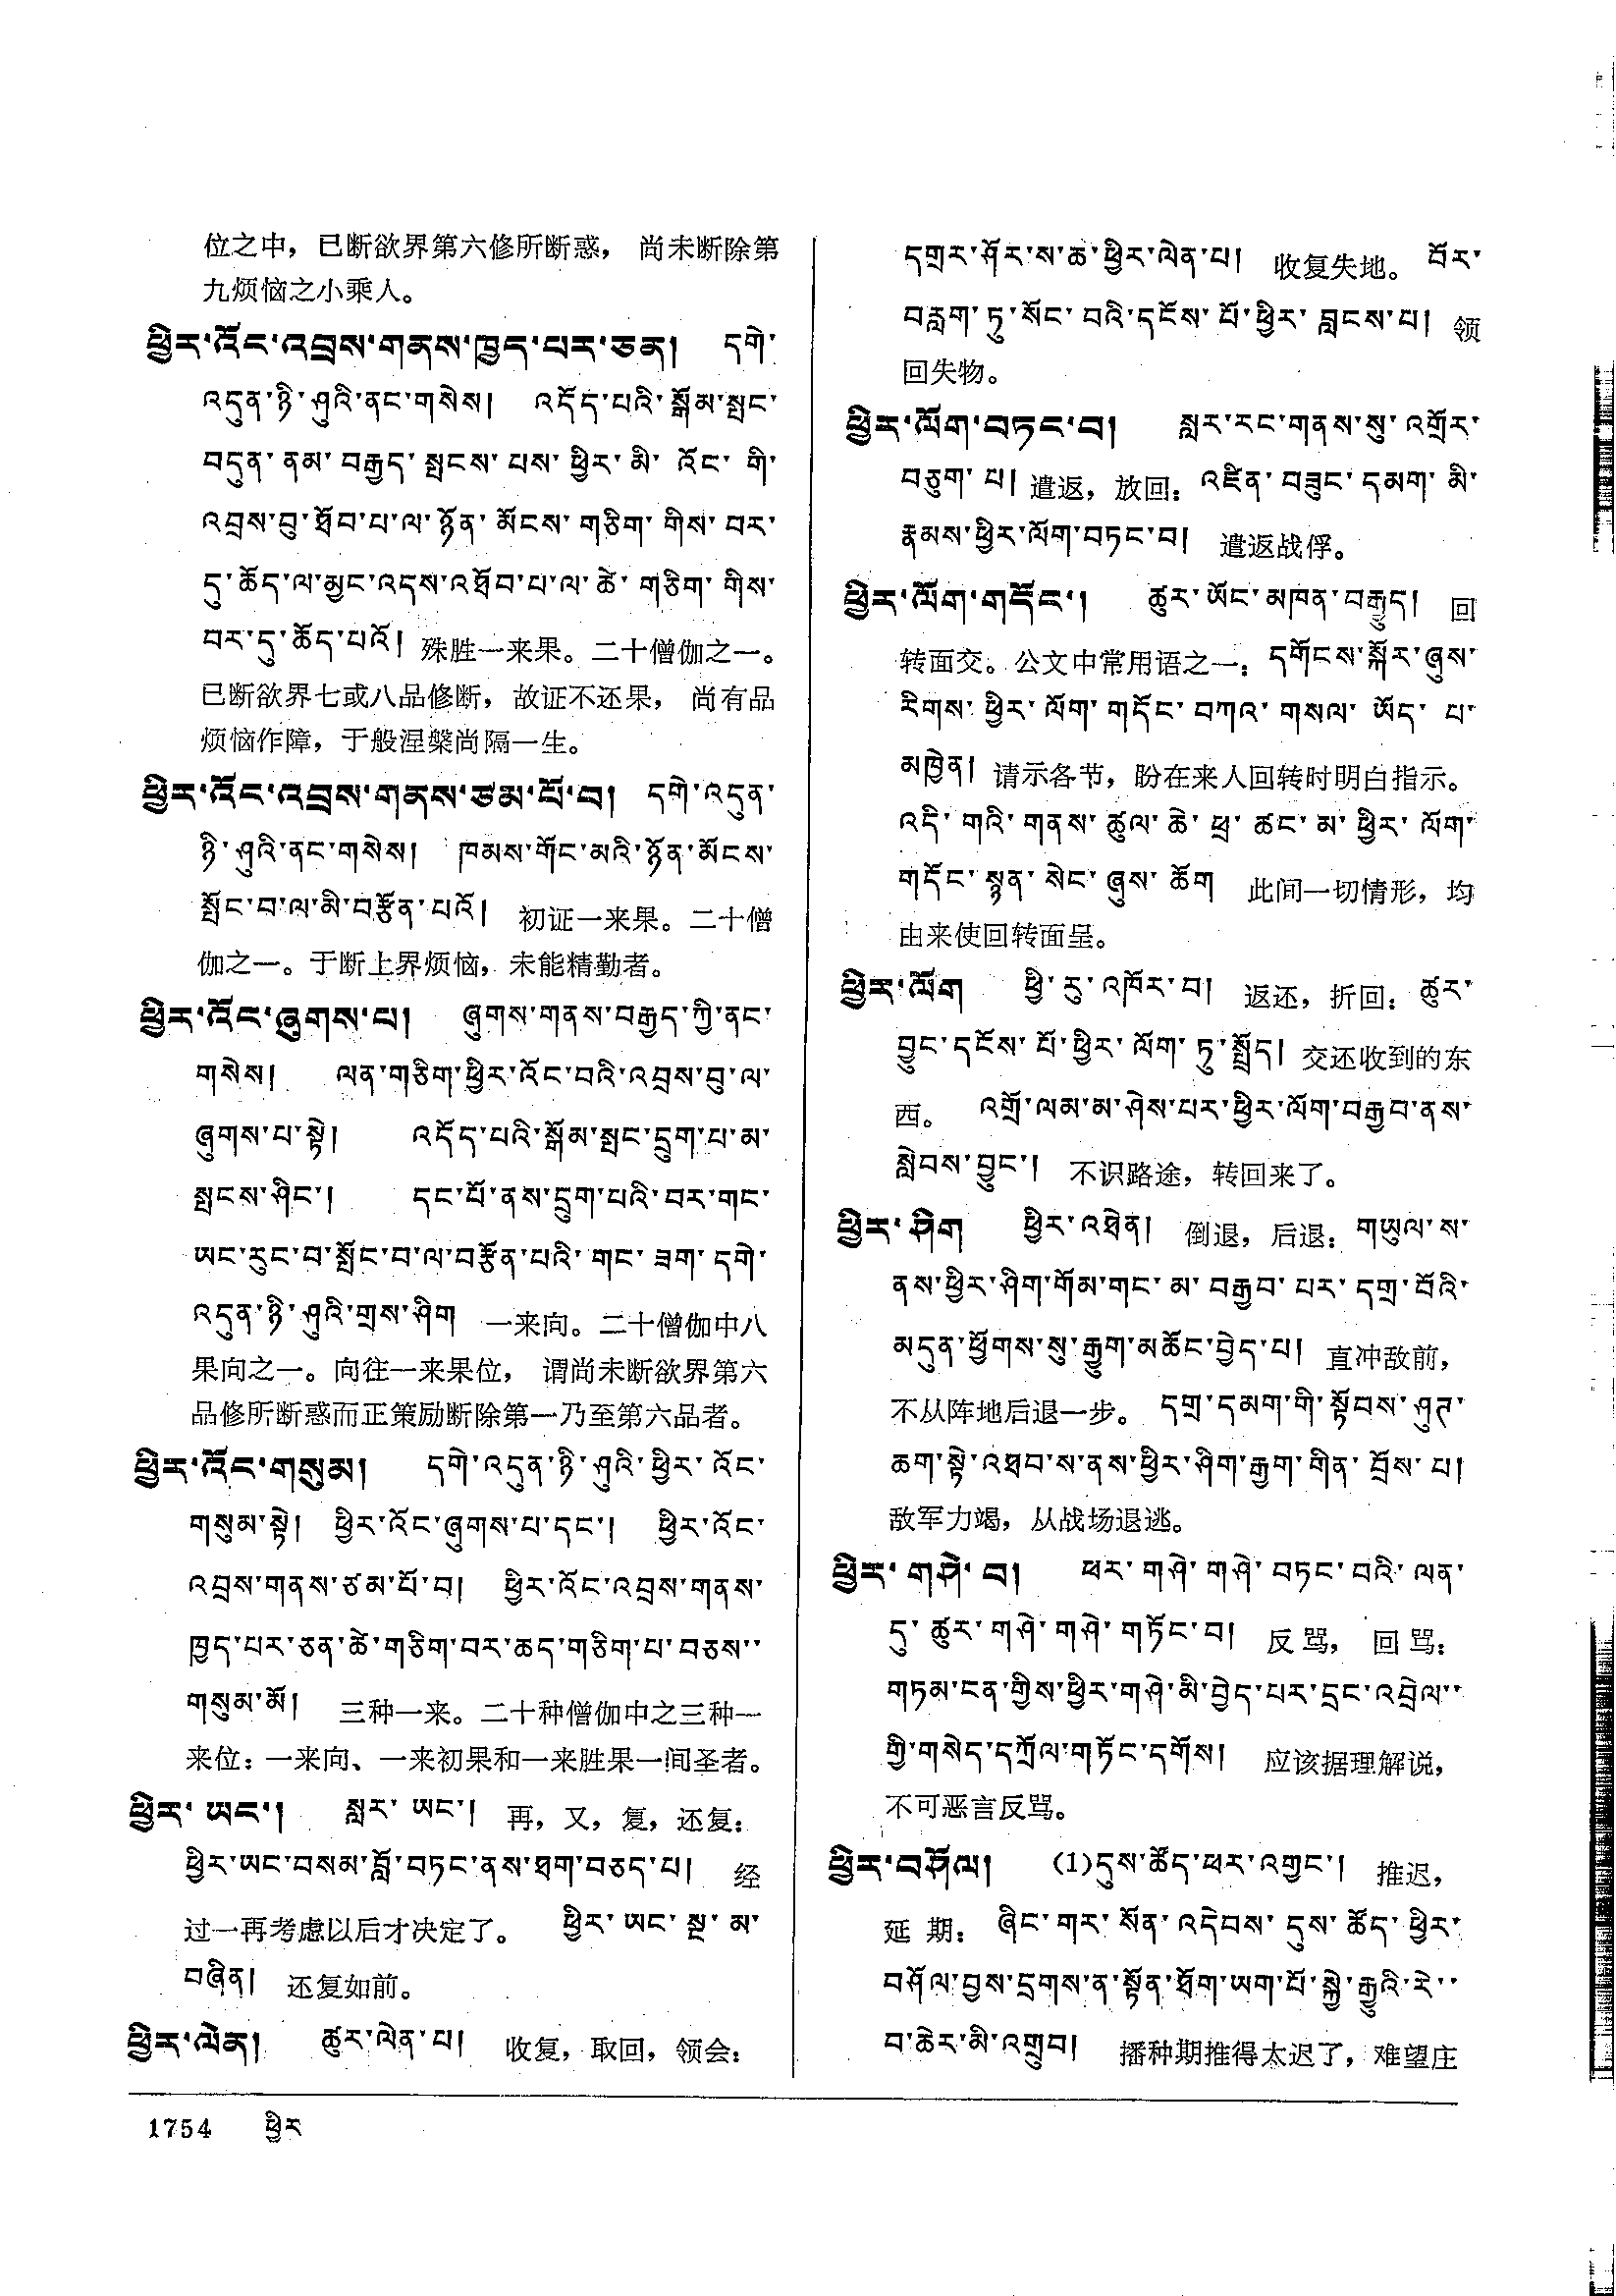 位之中，已断欲界第六修所断惑， 尚未断除第
九烦恼之小乘人。
ཕྱིར་འོང་འབྲས་གནས་ཁྱད་པར་ཅན། དགེ་
འདུན་ཉི་ཤུའི་ནང་གསེས། འདོད་པའི་སྒོམ་སྤང་
བདུན་ནམ་བརྒྱད་སྤངས་པས་ཕྱིར་མི་འོང་གི་
འབྲས་བུ་ཐོབ་པ་ལ་ཉོན་མོངས་གཅིག་གིས་བར་
དུ་ཆོད་ལ་མྱང་འདས་འཐོབ་པ་ལ་ཚེ་གཅིག་གིས་
བར་དུ་ཆོད་པའོ། 殊胜一来果。二十僧伽之一。
已断欲界七或八品修断，故证不还果， 尚有品
烦恼作障，于般涅槃尚隔一生。
ཕྱིར་འོང་འབྲས་གནས་ཙམ་པོ་བ། དགེ་འདུན་
ཉི་ཤུའི་ནང་གསེས། ཁམས་གོང་མའི་ཉོན་མོངས་
སྤོང་བ་ལ་མི་བརྩོན་པའོ། 初证一来果。二十僧
伽之一。于断上界烦恼，未能精勤者。
ཕྱིར་འོང་ཞུགས་པ། ཞུགས་གནས་བརྒྱད་ཀྱི་ནང་
གསེས། ལན་གཅིག་ཕྱིར་འོང་བའི་འབྲས་བུ་ལ་
ཞུགས་པ་སྟེ། འདོད་པའི་སྒོམ་སྤང་དྲུག་པ་མ་
སྤངས་ཤིང་། དང་པོ་ནས་དྲུག་པའི་བར་གང་
ཡང་རུང་བ་སྤོང་བ་ལ་བརྩོན་པའི་གང་ཟག་དགེ་
འདུན་ཉི་ཤུའི་གྲས་ཤིག 一来向。二十僧伽中八
果向之一。向往一来果位， 谓尚未断欲界第六
品修所断惑而正策励断除第一乃至第六品者。
ཕྱིར་འོང་གསུམ། དགེ་འདུན་ཉི་ཤུའི་ཕྱིར་འོང་
གསུམ་སྟེ། ཕྱིར་འོང་ཞུགས་པ་དང་། ཕྱིར་འོང་
འབྲས་གནས་ཙམ་པོ་བ། ཕྱིར་འོང་འབྲས་གནས་
ཁྱད་པར་ཅན་ཚེ་གཅིག་བར་ཆད་གཅིག་པ་བཅས་་
གསུམ་མོ། 三种一来。二十种僧伽中之三种一
来位：一来向、一来初果和一来胜果一间圣者。
ཕྱིར་ཡང་། སླར་ཡང་། 再，又，复，还复：
ཕྱིར་ཡང་བསམ་བློ་བཏང་ནས་ཐག་བཅད་པ། 经
过一再考虑以后才决定了。 ཕྱིར་ཡང་སྔ་མ་
བཞིན། 还复如前。
ཕྱིར་ལེན། ཚུར་ལེན་པ། 收复，取回，领会：
དགྲར་ཤོར་ས་ཆ་ཕྱིར་ལེན་པ། 收复失地。 བོར་
བརླག་ཏུ་སོང་བའི་དངོས་པོ་ཕྱིར་བླངས་པ། 领
回失物。
ཕྱིར་ལོག་བཏང་བ། སླར་རང་གནས་སུ་འགྲོར་
བཅུག་པ། 遣返，放回：འཛིན་བཟུང་དམག་མི་
རྣམས་ཕྱིར་ལོག་བཏང་བ། 遣返战俘。
ཕྱིར་ལོག་གདོང་། ཚུར་ཡོང་མཁན་བརྒྱུད། 回
转面交。公文中常用语之一：དགོངས་སྐོར་ཞུས་
རིགས་ཕྱིར་ལོག་གདོང་བཀའ་གསལ་ཡོད་པ་
མཁྱེན། 请示各节，盼在来人回转时明白指示。
འདི་གའི་གནས་ཚུལ་ཆེ་ཕྲ་ཚང་མ་ཕྱིར་ལོག་
གདོང་སྙན་སེང་ཞུས་ཆོག 此间一切情形，均
由来使回转面呈。
ཕྱིར་ལོག ཕྱི་རུ་འཁོར་བ། 返还，折回：ཚུར་
བྱུང་དངོས་པོ་ཕྱིར་ལོག་ཏུ་སྤྲོད། 交还收到的东
西。 འགྲོ་ལམ་མ་ཤེས་པར་ཕྱིར་ལོག་བརྒྱབ་ནས་
སླེབས་བྱུང་། 不识路途，转回来了。
ཕྱིར་ཤིག ཕྱིར་འཐེན། 倒退，后退：གཡུལ་ས་
ནས་ཕྱིར་ཤིག་གོམ་གང་མ་བརྒྱབ་པར་དགྲ་བོའི་
མདུན་ཕྱོགས་སུ་རྒྱུག་མཆོང་བྱེད་པ། 直冲敌前，
不从阵地后退一步。 དགྲ་དམག་གི་སྟོབས་ཤུཊ་
ཆག་སྟེ་འཐབ་ས་ནས་ཕྱིར་ཤིག་རྒྱག་གིན་བྲོས་པ།
敌军力竭，从战场退逃。
ཕྱིར་གཤེ་བ། ཕར་གཤེ་གཤེ་བཏང་བའི་ལན་
དུ་ཚུར་གཤེ་གཤེ་གཏོང་བ། 反骂， 回骂：
གཏམ་ངན་གྱིས་ཕྱིར་གཤེ་མི་བྱེད་པར་དྲང་འབྲེལ་་
གྱི་གསེད་དཀྲོལ་གཏོང་དགོས། 应该据理解说，
不可恶言反骂。
ཕྱིར་བཤོལ། (1)དུས་ཚོད་ཕར་འགྱང་། 推迟，
延 期：ཞིང་གར་སོན་འདེབས་དུས་ཚོད་ཕྱིར་
བཤོལ་བྱས་དྲགས་ན་སྟོན་ཐོག་ཡག་པོ་སྐྱེ་རྒྱུའི་རེ་་
བ་ཆེར་མི་འགྲུབ། 播种期推得太迟了，难望庄
1754 ཕྱིར